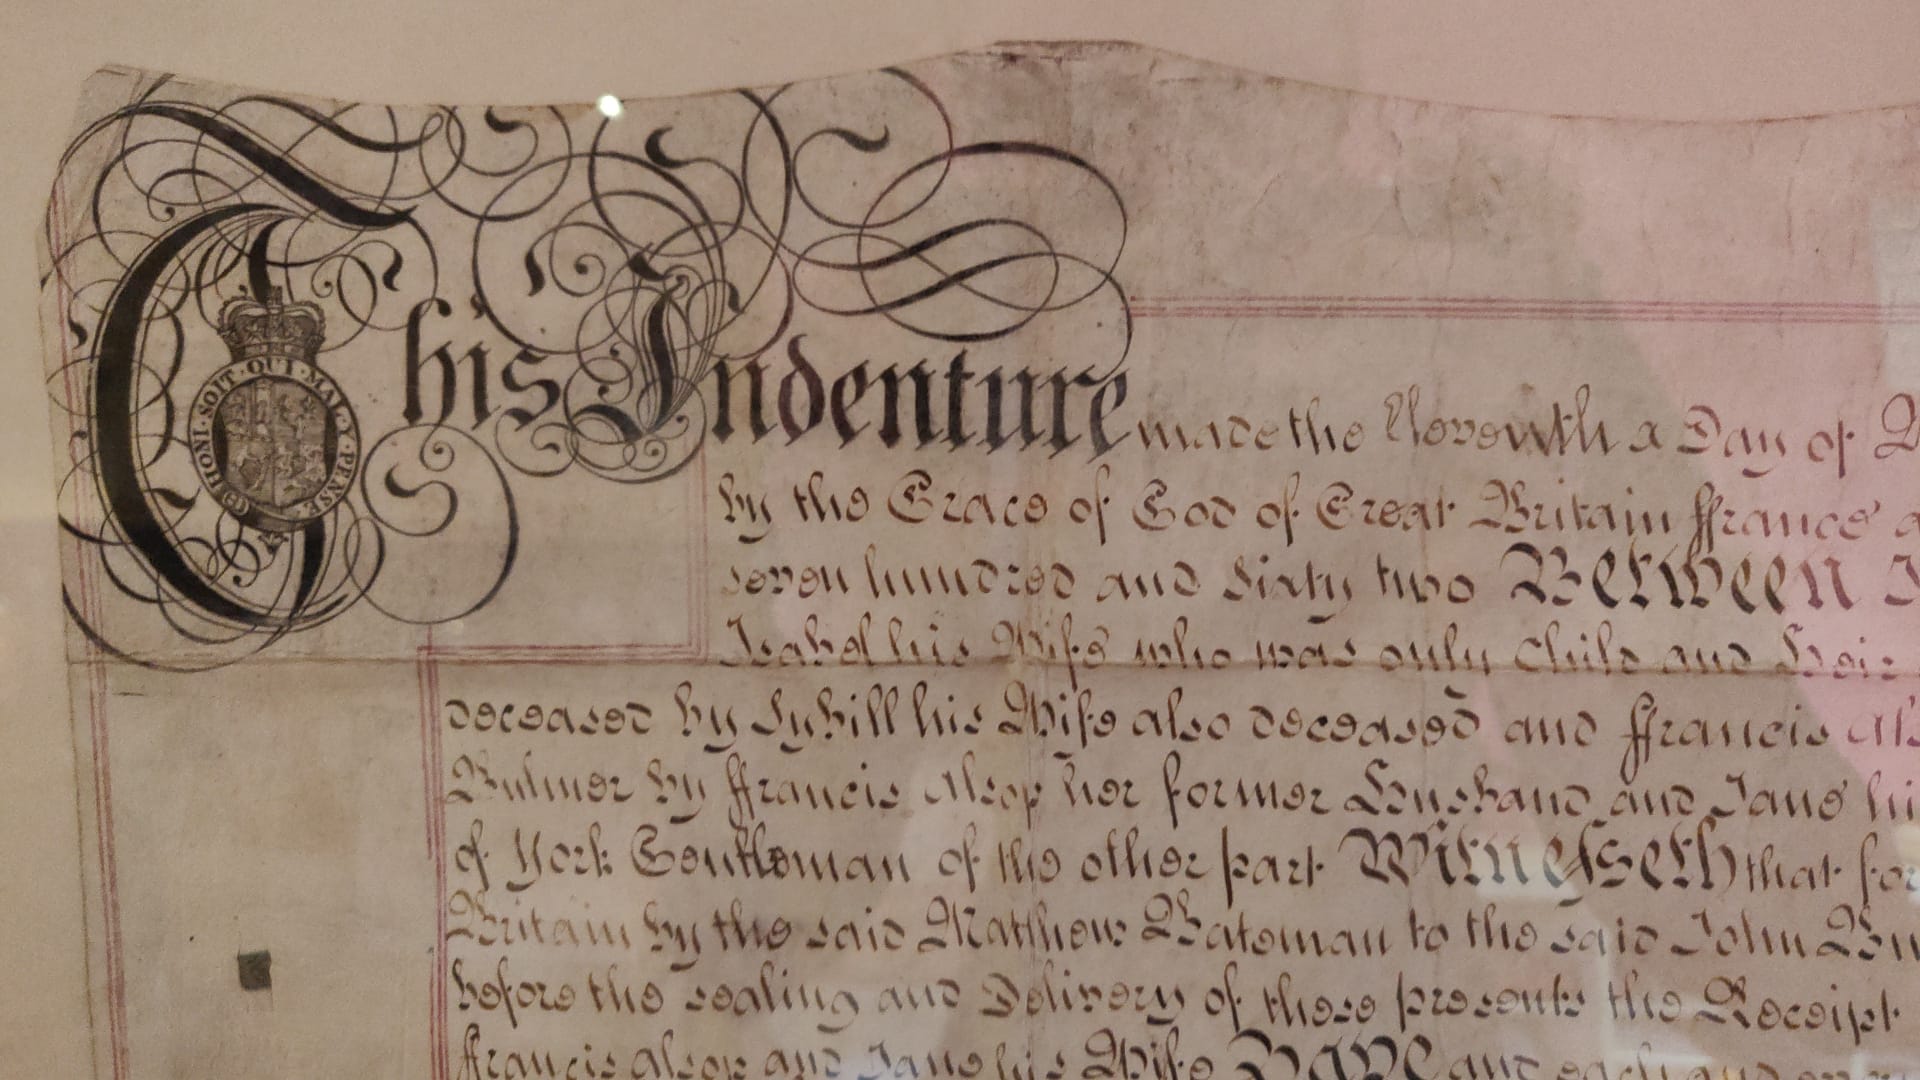 HONI · SOIT · QUI · MAL · Y · PENSE
This Indenture made the Eleventh Day of
by the Grace of God of Great Britain ffrance
seven hundred and Sixty two Between
Isabel his Wife who was only Child and Heir
deceased by Sybill his Wife also deceased and ffrancis
Bulmer by ffrancis Alsop her former Husband and Jane
of York Gentleman of the other part Witnesseth that for
Britain by the said Matthew Bateman to the said John
before the sealing and Delivery of these presents the Receipt
ffrancis Alsop and Jane his Wife Have and each and